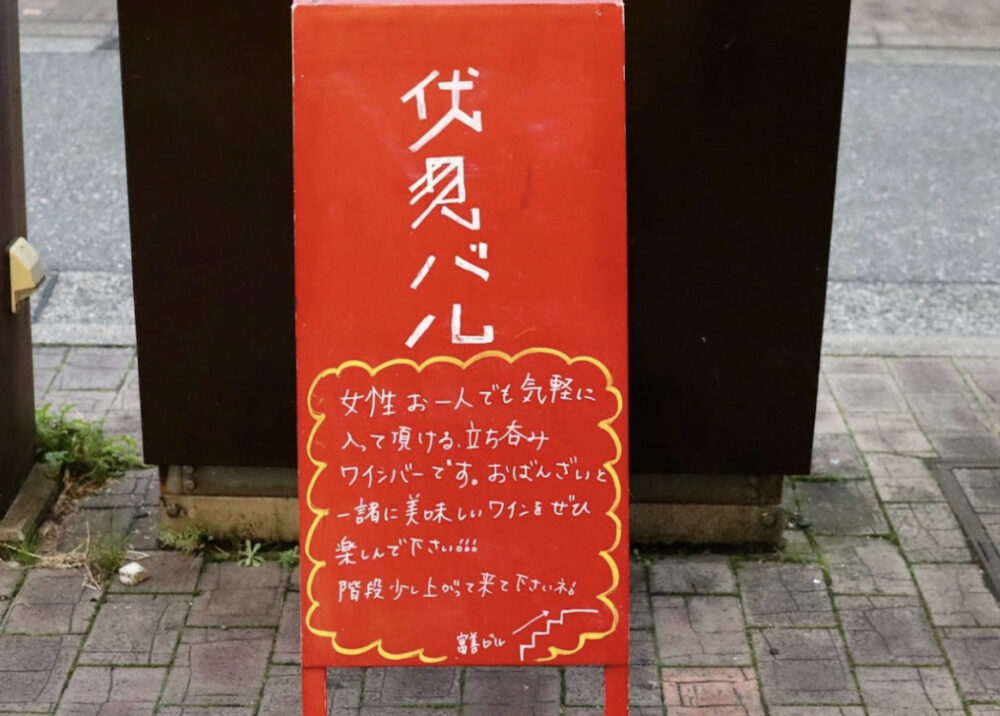 伏見バル
女性お一人でも気軽に
入って頂ける、立ち呑み
ワインバーです。おばんざいと
一諸に美味しいワインをぜひ
楽しんで下さい!!!
階段少し上がって来て下さいネ!
富善ビル